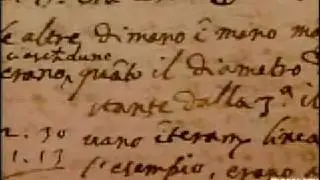 le altre di mano i mano ma
ciascheduno
erano, quãto il diametro
stante dalla 3ª il
2. 30 uano iteram linea
1. 13 l'esempio, erano